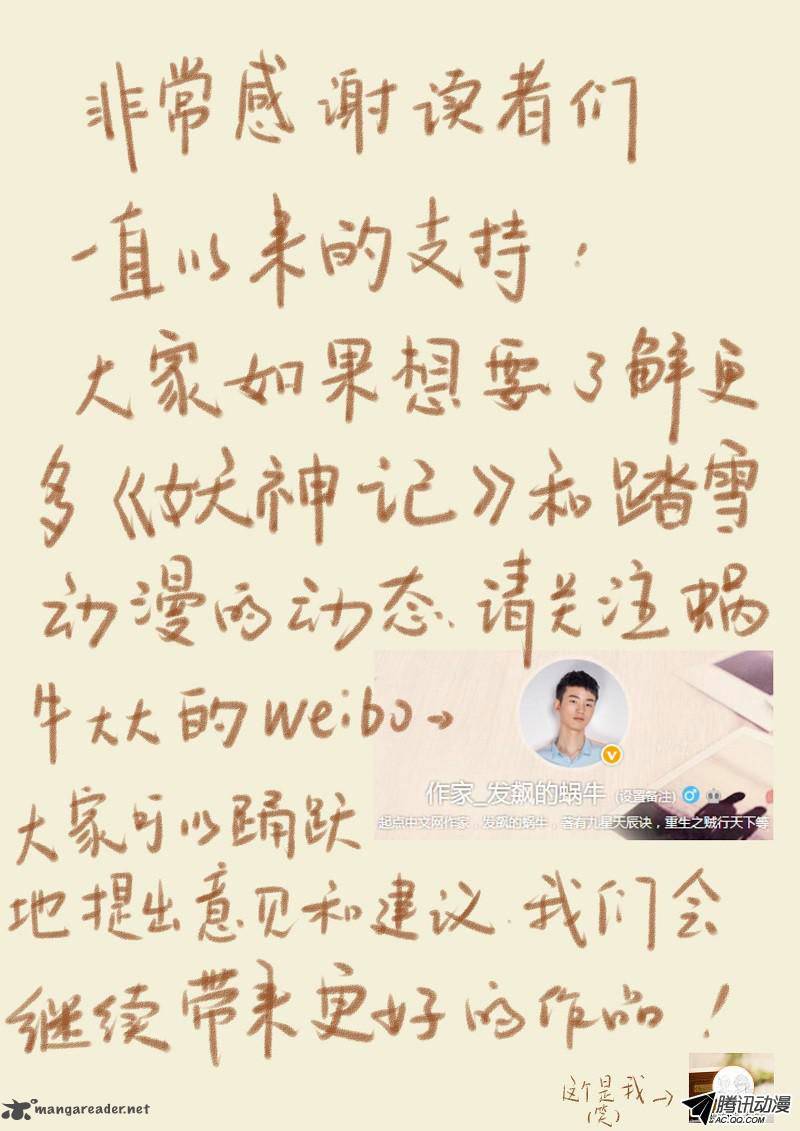 非常感谢读者们
一直以来的支持！
大家如果想要了解更
多《妖神记》和踏雪
动漫的动态、请关注蜗
牛大大的weibo→
作家_发飙的蜗牛 (设置备注)
起点中文网作家，发飙的蜗牛，著有九星天辰诀，重生之贼行天下等
大家可以踊跃
地提出意见和建议．我们会
继续带来更好的作品！
这个是我→
(笑)
mangareader.net
腾讯动漫
AC.QQ.COM